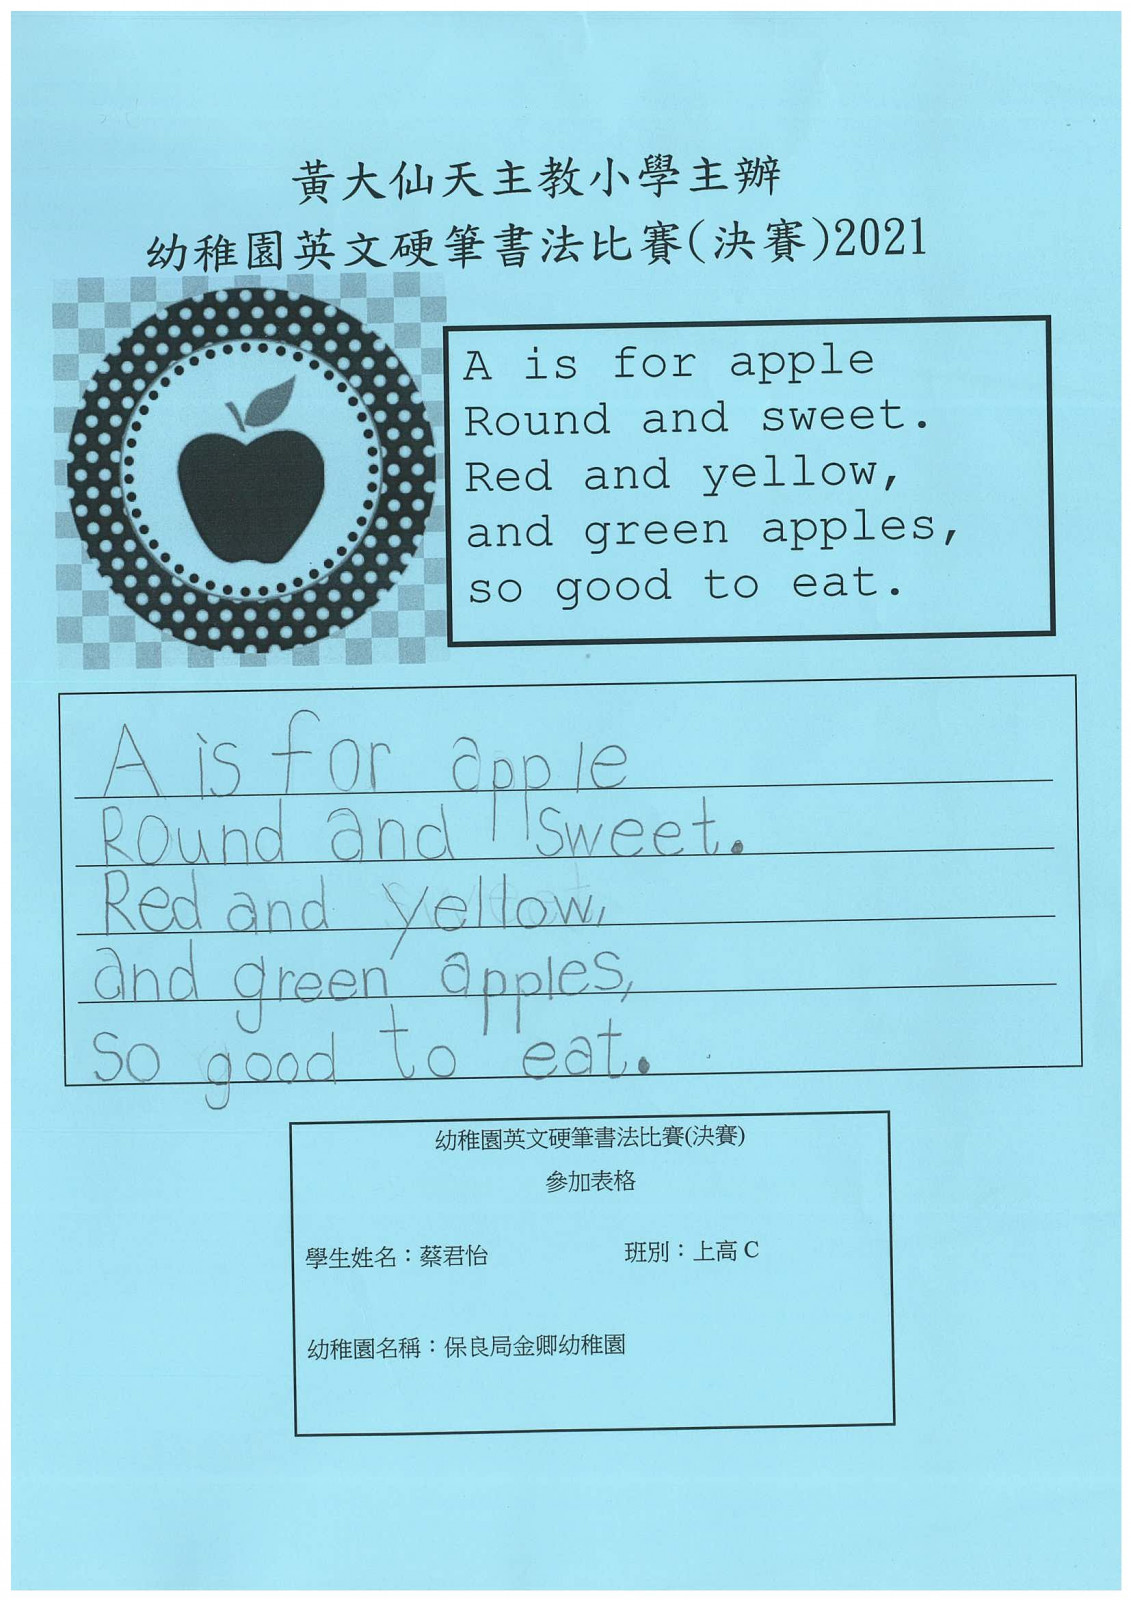 黃大仙天主教小學主辦
幼稚園英文硬筆書法比賽(決賽)2021
A is for apple
Round and sweet.
Red and yellow,
and green apples,
so good to eat.
A is for apple
Round and sweet.
Red and yellow,
and green apples,
so good to eat.
幼稚園英文硬筆書法比賽(決賽)
參加表格
學生姓名：蔡君怡 班別：上高 C
幼稚園名稱：保良局金卿幼稚園